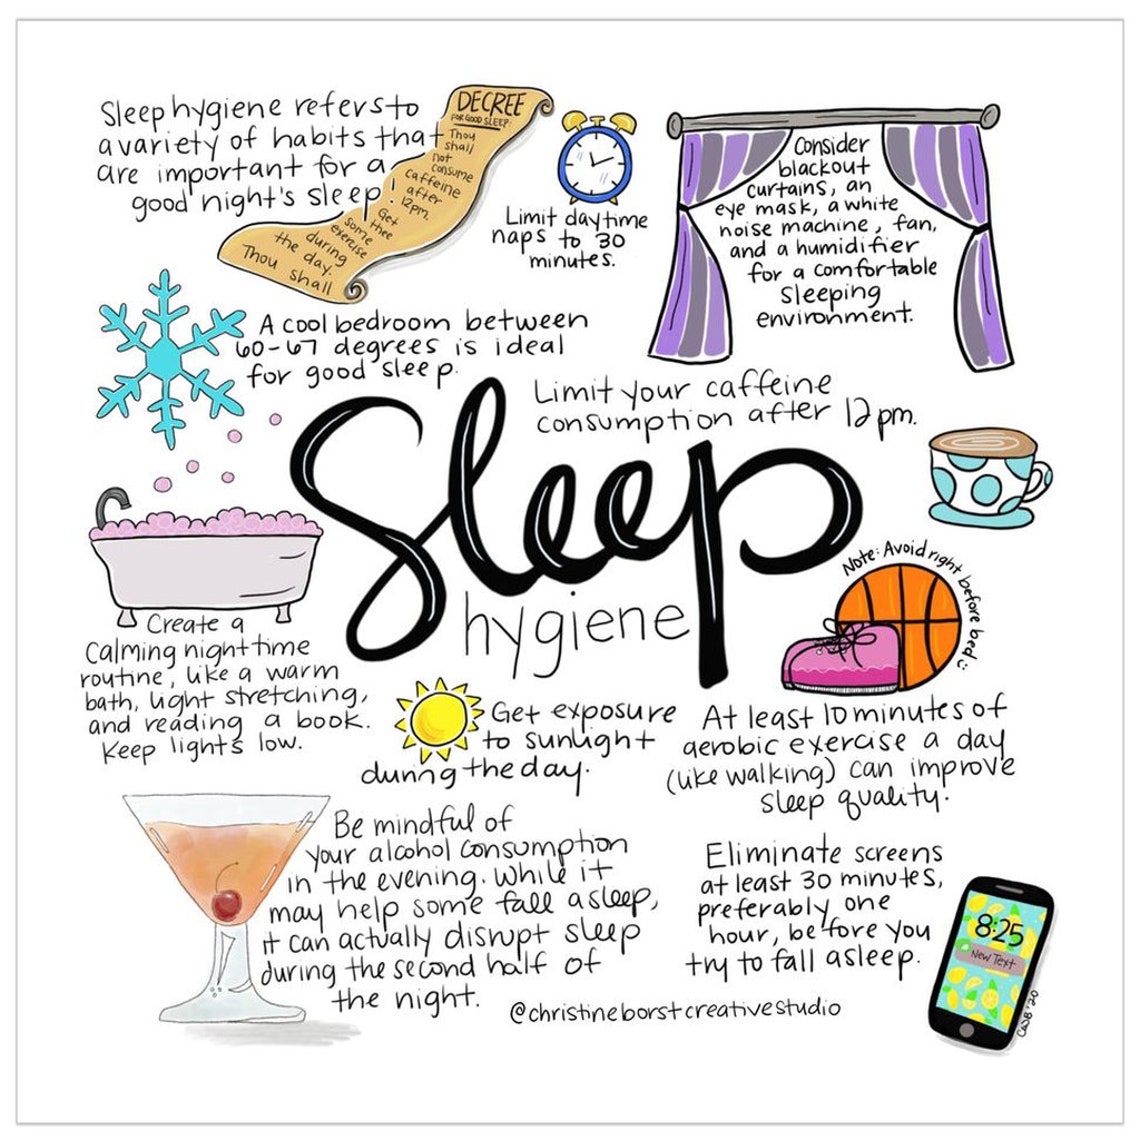 Sleep hygiene refers to
a variety of habits that
are important for a
good night's sleep!
DECREE
FOR GOOD SLEEP:
Thou
shall
not
consume
caffeine
after
12pm.
Get
thee
some
exercise
during
the day.
Thou shall
Limit daytime
naps to 30
minutes.
Consider
blackout
curtains, an
eye mask, a white
noise machine, fan,
and a humidifier
for a comfortable
sleeping
environment.
A cool bedroom between
60-67 degrees is ideal
for good sleep.
Limit your caffeine
consumption after 12pm.
Sleep
hygiene
Note: Avoid right before bed :)
Create a
calming nighttime
routine, like a warm
bath, light stretching,
and reading a book.
Keep lights low.
Get exposure
to sunlight
during the day.
At least 10 minutes of
aerobic exercise a day
(like walking) can improve
sleep quality.
Be mindful of
your alcohol consumption
in the evening. While it
may help some fall asleep,
it can actually disrupt sleep
during the second half of
the night.
Eliminate screens
at least 30 minutes,
preferably one
hour, before you
try to fall asleep.
8:25
New Text
CWB '20
@christineborstcreativestudio